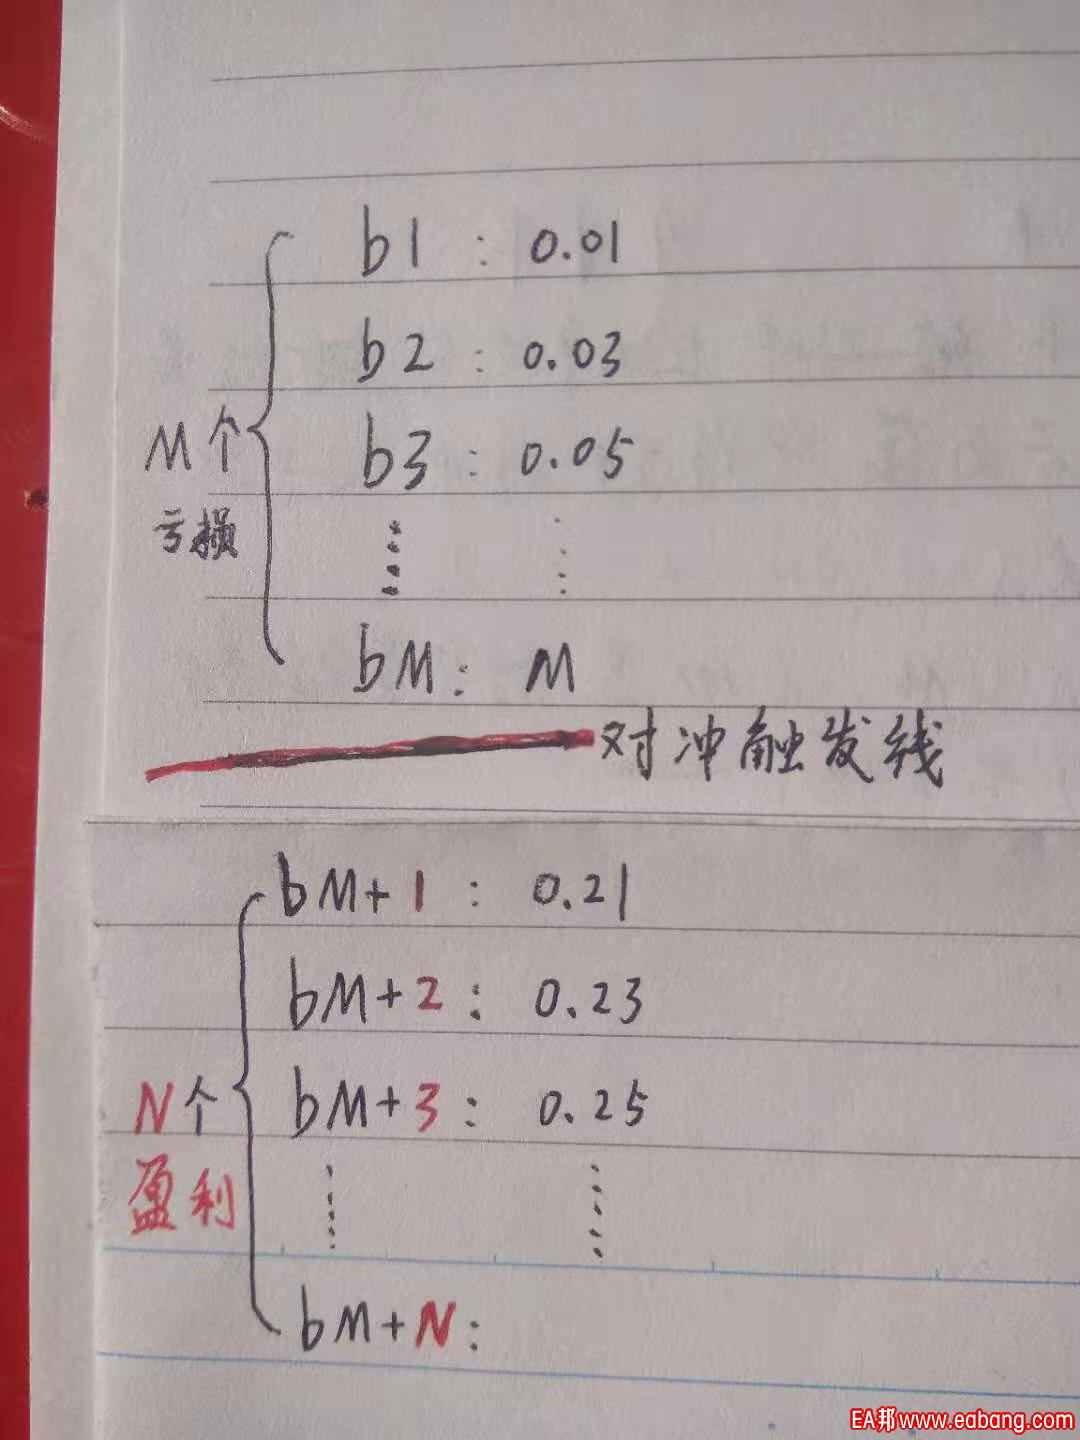 b1 : 0.01
b2 : 0.03
b3 : 0.05
M个
亏损
bM : M
对冲触发线
bM+1 : 0.21
bM+2 : 0.23
bM+3 : 0.25
N个
盈利
bM+N :
EA邦 www.eabang.com